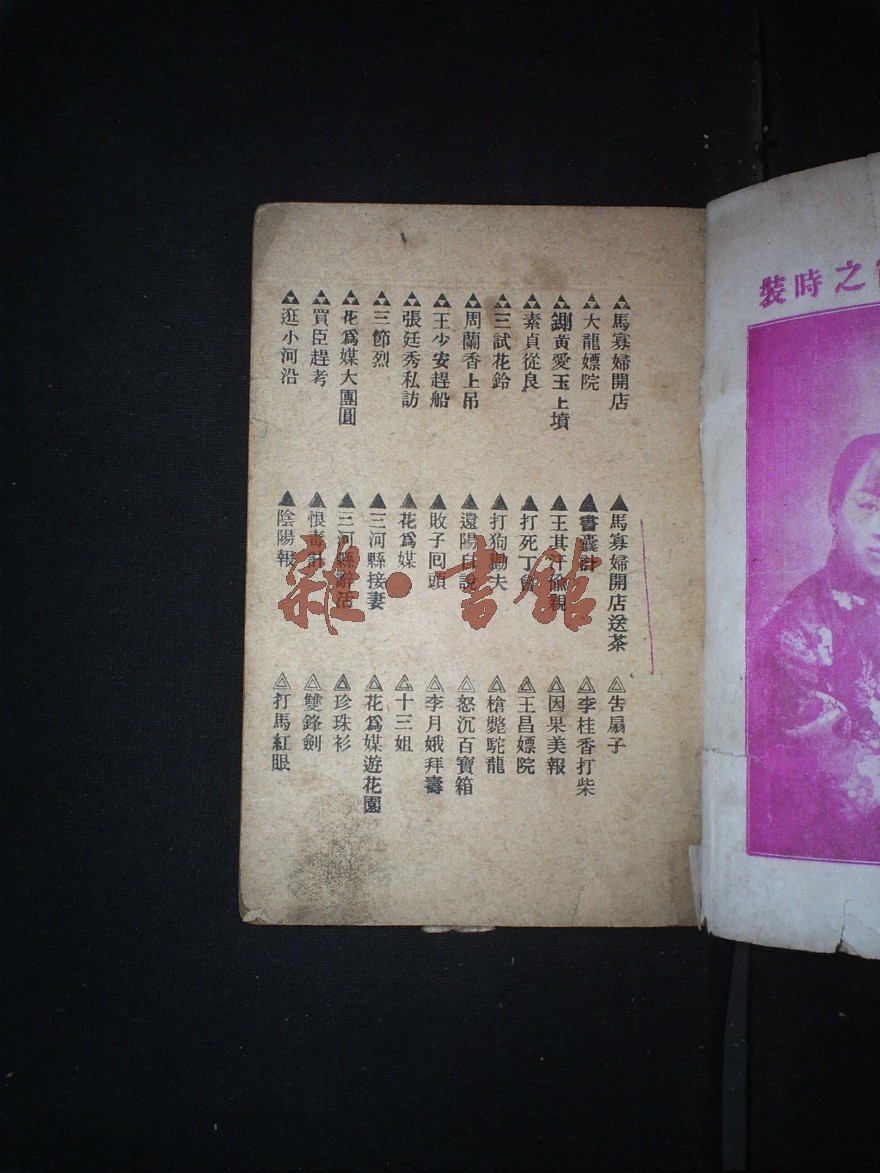 馬寡婦開店
大龍嫖院
鍘黄愛玉上墳
素貞從良
三試花鈴
周蘭香上吊
王少安趕船
張廷秀私訪
三節烈
花爲媒大團圓
買臣趕考
逛小河沿
馬寡婦開店送茶
書囊計
打死丁會
打狗勸夫
還陽自說
敗子回頭
花爲媒
三河縣接妻
三河縣辭活
恨毒計
陰陽報
告扇子
李桂香打柴
因果美報
王昌嫖院
槍斃駝龍
怒沉百寶箱
李月娥拜壽
十三姐
花爲媒遊花園
珍珠衫
雙鋒劍
打馬紅眼
之時裝
雜·書館